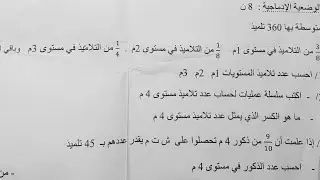 الوضعية الإدماجية : 8 ن
متوسطة بها 360 تلميذ
3/8 من التلاميذ في مستوى 1م . 1/8 من التلاميذ في مستوى 2م . 1/4 من التلاميذ في مستوى 3م وباقي
1/ أحسب عدد تلاميذ المستويات 1م 2م 3م
- اكتب سلسلة عمليات لحساب عدد تلاميذ مستوى 4 م
- ما هو الكسر الذي يمثل عدد تلاميذ مستوى 4م
/إذا علمت أن 9/10 من ذكور 4م تحصلوا على ش ت م يقدر عددهم بـ 45 تلميذ
- أحسب عدد الذكور في مستوى 4 م
- من